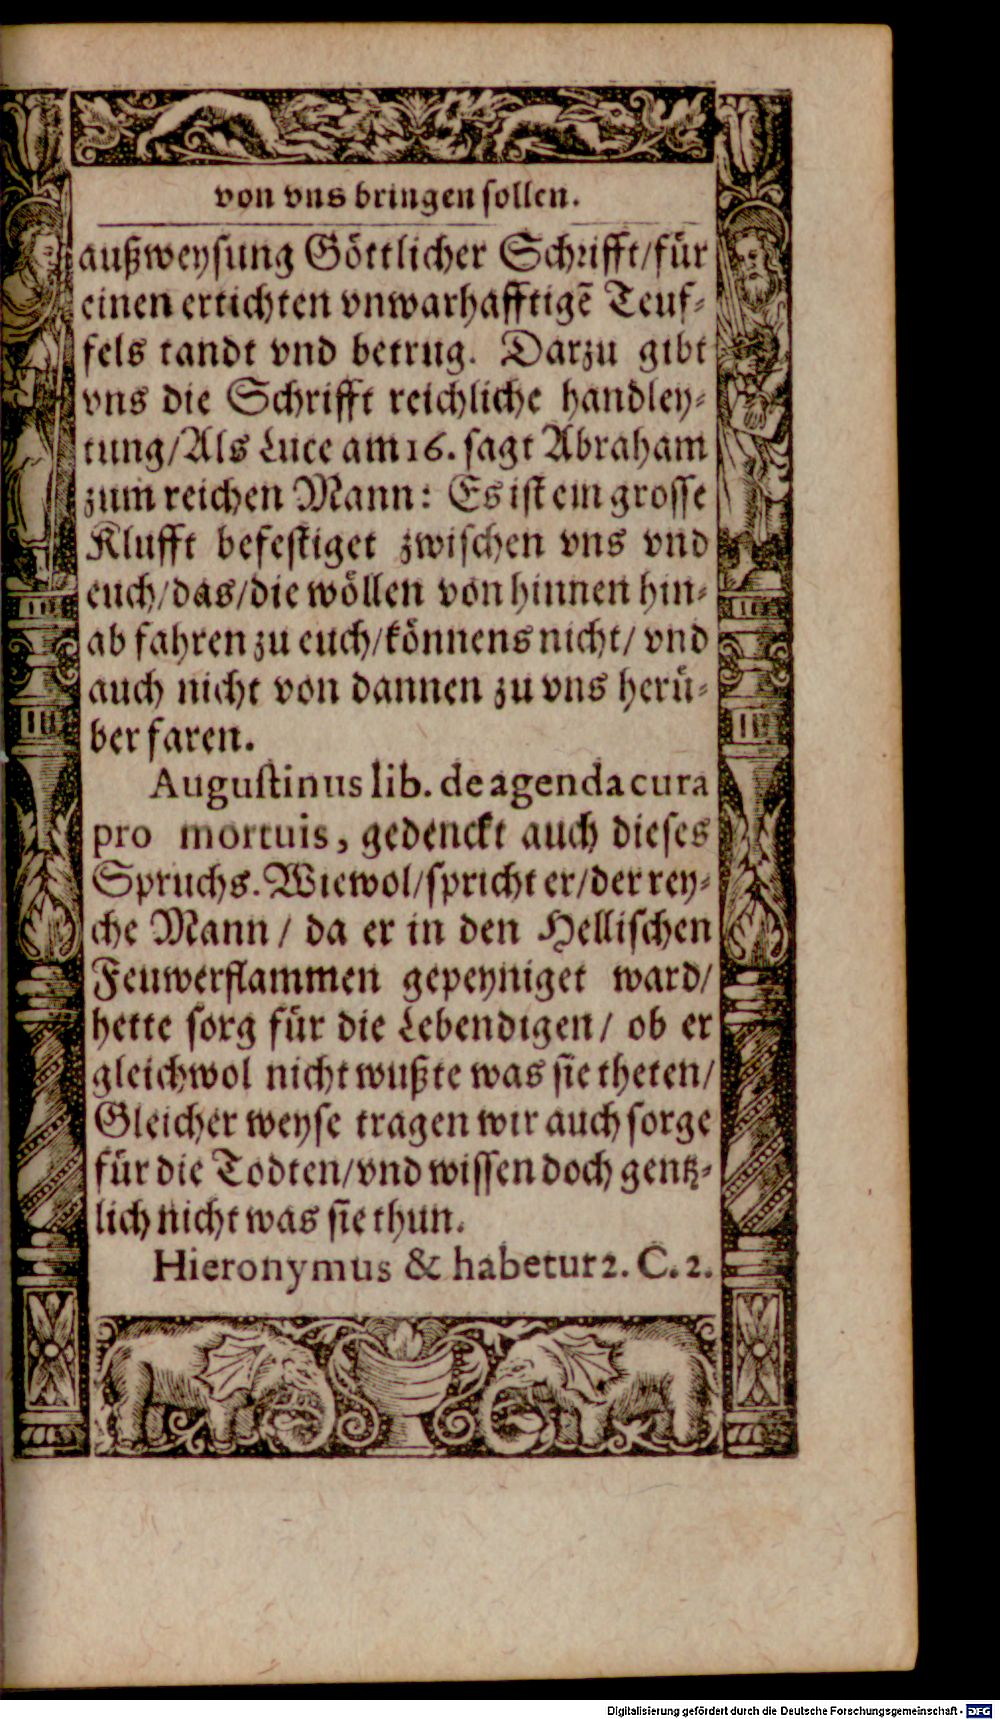 von vns bringen sollen.
außweysung Göttlicher Schrifft/für
einen ertichten vnwarhafftigẽ Teuf-
fels tandt vnd betrug. Darzu gibt
vns die Schrifft reichliche handley-
tung/Als Luce am 16. sagt Abraham
zum reichen Mann: Es ist ein grosse
Klufft befestiget zwischen vns vnd
euch/das/die wöllen von hinnen hin-
ab fahren zu euch/können s nicht/ vnd
auch nicht von dannen zu vns herü-
ber faren.
Augustinus lib. de agenda cura
pro mortuis, gedenckt auch dieses
Spruchs. Wiewol/spricht er/der rey-
che Mann/ da er in den Hellischen
Feuwerflammen gepeyniget ward/
hette sorg für die Lebendigen/ ob er
gleichwol nicht wußte was sie theten/
Gleicher weyse tragen wir auch sorge
für die Todten/vnd wissen doch gentz-
lich nicht was sie thun.
Hieronymus & habetur 2. C. 2.
Digitalisierung gefördert durch die Deutsche Forschungsgemeinschaft - DFG